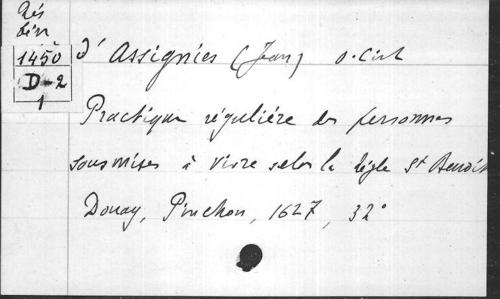 Rés
1450
D-2
1
d'Assignies (Jean) o. Cist
Practique régulière des personnes
sousmises à vivre selon la règle St Benoit
Douay, Pinchon, 1627, 32°